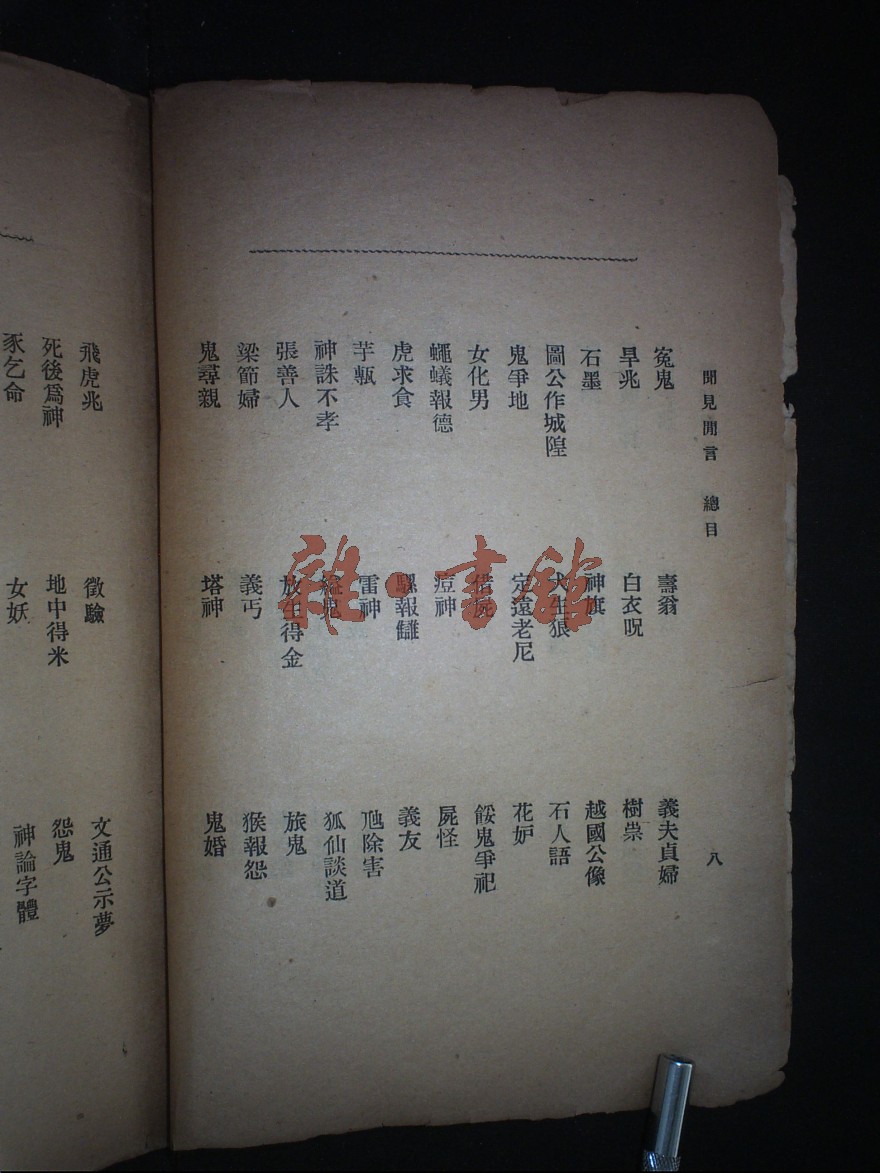 聞見閒言 總目 八
冤鬼 壽翁 義夫貞婦
旱兆 白衣呪 樹祟
石墨 神旗 越國公像
圖公作城隍 犬生狼 石人語
鬼爭地 定遠老尼 花妒
女化男 借屍 餒鬼爭祀
蠅蟻報德 痘神 屍怪
虎求食 騾報讎 義友
芋甎 雷神 虺除害
神誅不孝 縊鬼 狐仙談道
張善人 放生得金 旅鬼
梁節婦 義丐 猴報怨
鬼尋親 塔神 鬼婚
飛虎兆 徵驗 文通公示夢
死後爲神 地中得米 怨鬼
豕乞命 女妖 神論字體
雜·書館